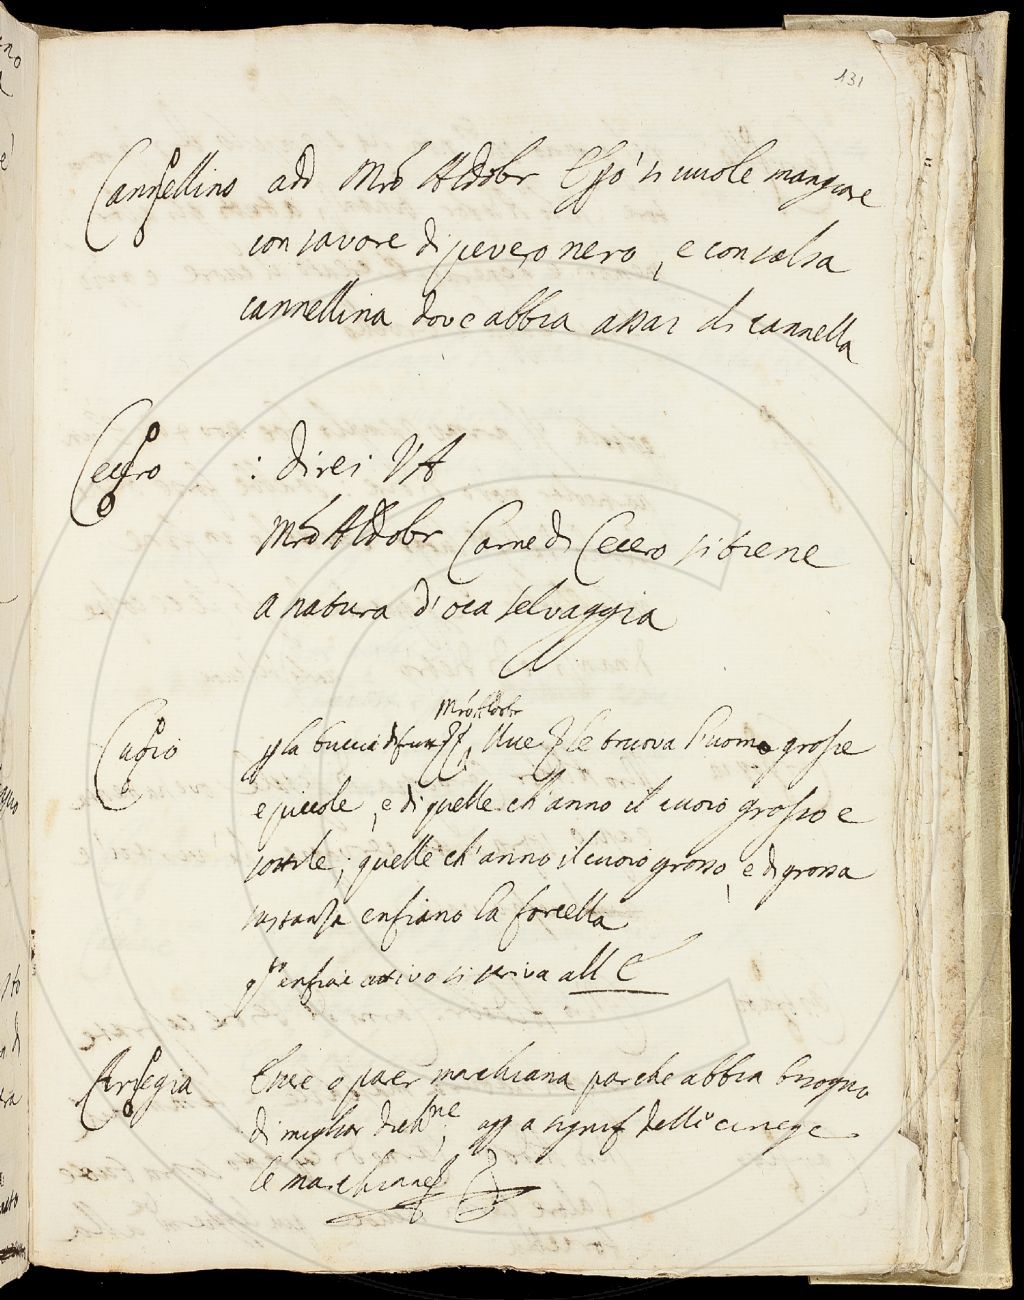 131
Cannellino add Mrõ Aldobr Esso si vuole mangiare
con savore di pevero nero, e con salsa
cannellina dove abbia assai di cannella
Cecero : direi VA
Mrõ Aldobr Carne di Cecero si tiene
a natura d'oca selvaggia
Mrõ Aldobr
Cuoio la buccia Uve le truova l'uomo grosse
e piccole, e di quelle ch'anno il cuoio grosso e
sottile; quelle ch'anno il cuoio grosso, e di grossa
sustanza enfiano la forcella
qto enfiare attivo si scriva all E
Ciriegia marchiana par che abbia bisogno
di miglior dichne, a signif delle ciriege
le marchiane